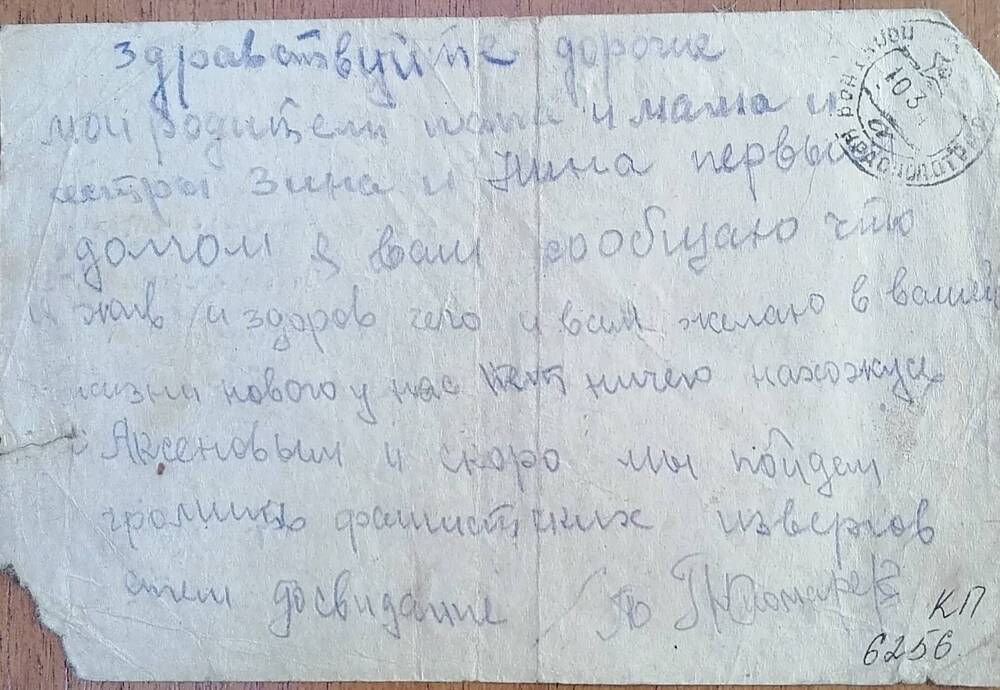 Здравствуйте дорогие
мои родители папа и мама и
сестры Зина и Нина первым
долгом я вам сообщаю что
я жив и здоров чего и вам желаю в вашей
жизни нового у нас нет ничего нахожусь
с Аксеновым и скоро мы пойдем
громить фашистских извергов
стем досвидание
КП
6256